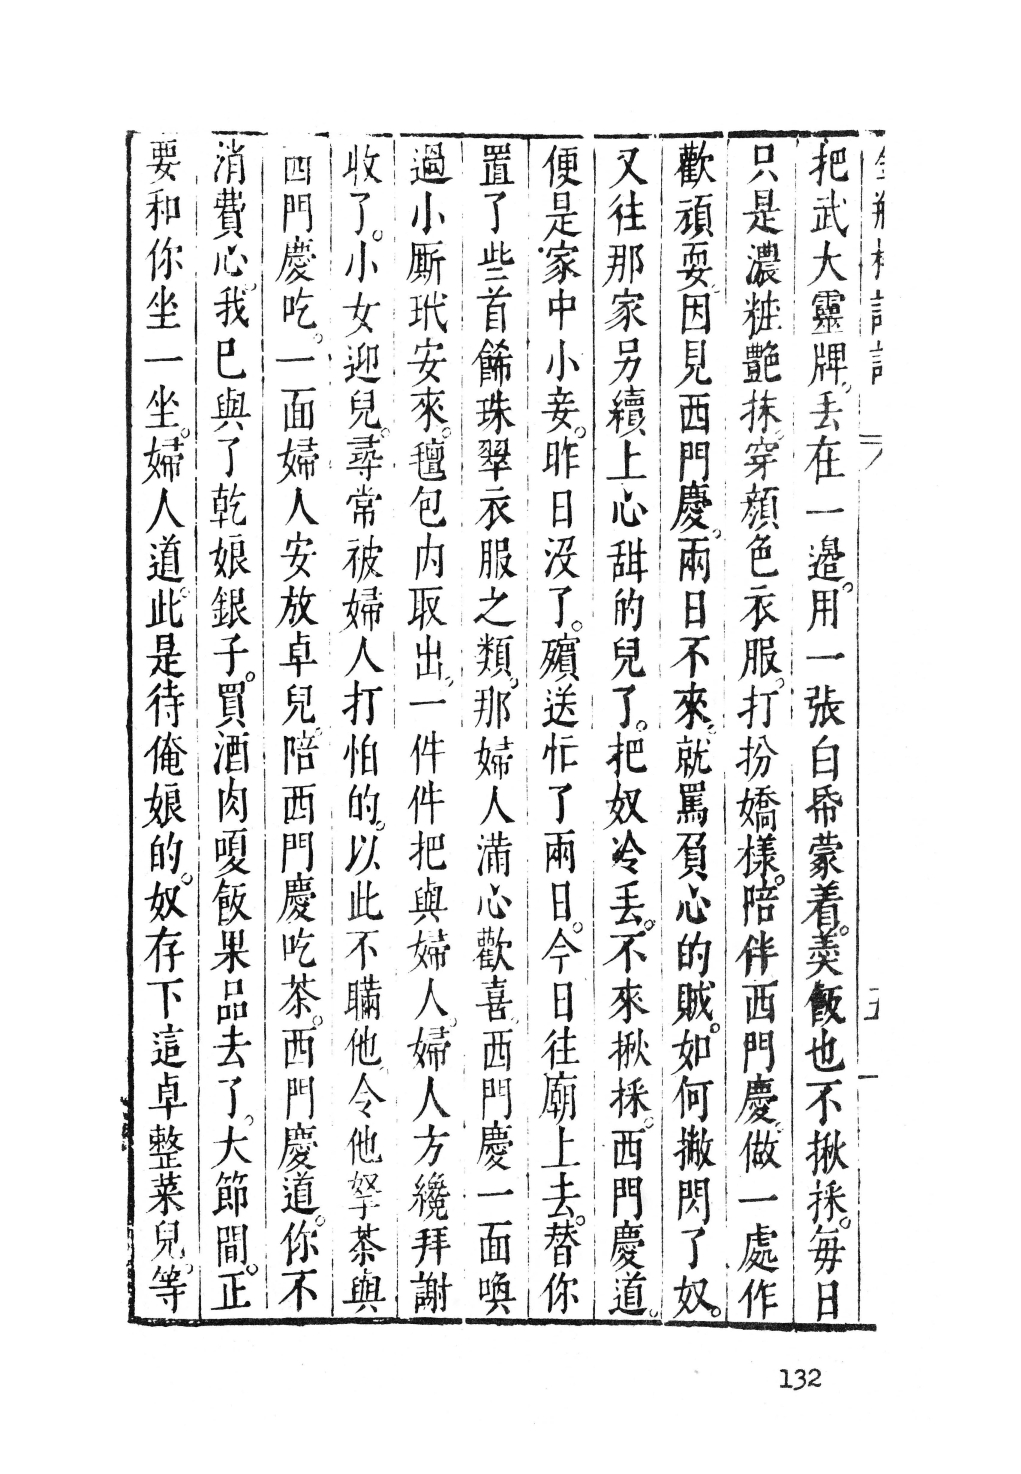 把武大靈牌。丢在一邊。用一張白帋蒙着。羹飯也不揪採。毎日
只是濃粧艷抹。穿顔色衣服。打扮嬌樣。陪伴西門慶。做一處作
歡頑耍。因見西門慶。兩日不來。就罵負心的賊。如何撇閃了奴。
又往那家另續上心甜的兒了。把奴冷丢。不來揪採。西門慶道。
便是家中小妾。昨日没了。殯送忙了兩日。今日往廟上去。替你
置了些首餙珠翠衣服之類。那婦人滿心歡喜。西門慶一面喚
過小厮玳安來。毡包内取出。一件件把與婦人。婦人方纔拜謝
收了。小女迎兒。尋常被婦人打怕的。以此不瞞他。令他拏茶與
西門慶吃。一面婦人安放卓兒。陪西門慶吃茶。西門慶道。你不
消費心。我已與了乾娘銀子。買酒肉嗄飯果品去了。大節間。正
要和你坐一坐。婦人道。此是待俺娘的。奴存下這卓整菜兒。等
132